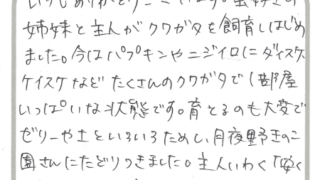 いつもありがとうございます。
姉妹と主人がクワガタを飼育しはじめ
ました。今はパプキンやニジイロにダイスケ
ケイスケなど たくさんのクワガタで1部屋
いっぱいな状態です。育てるのも大変で
ゼリーや土といろいろためし、月夜野きのこ
園さんにたどりつきました。主人いわく「安く